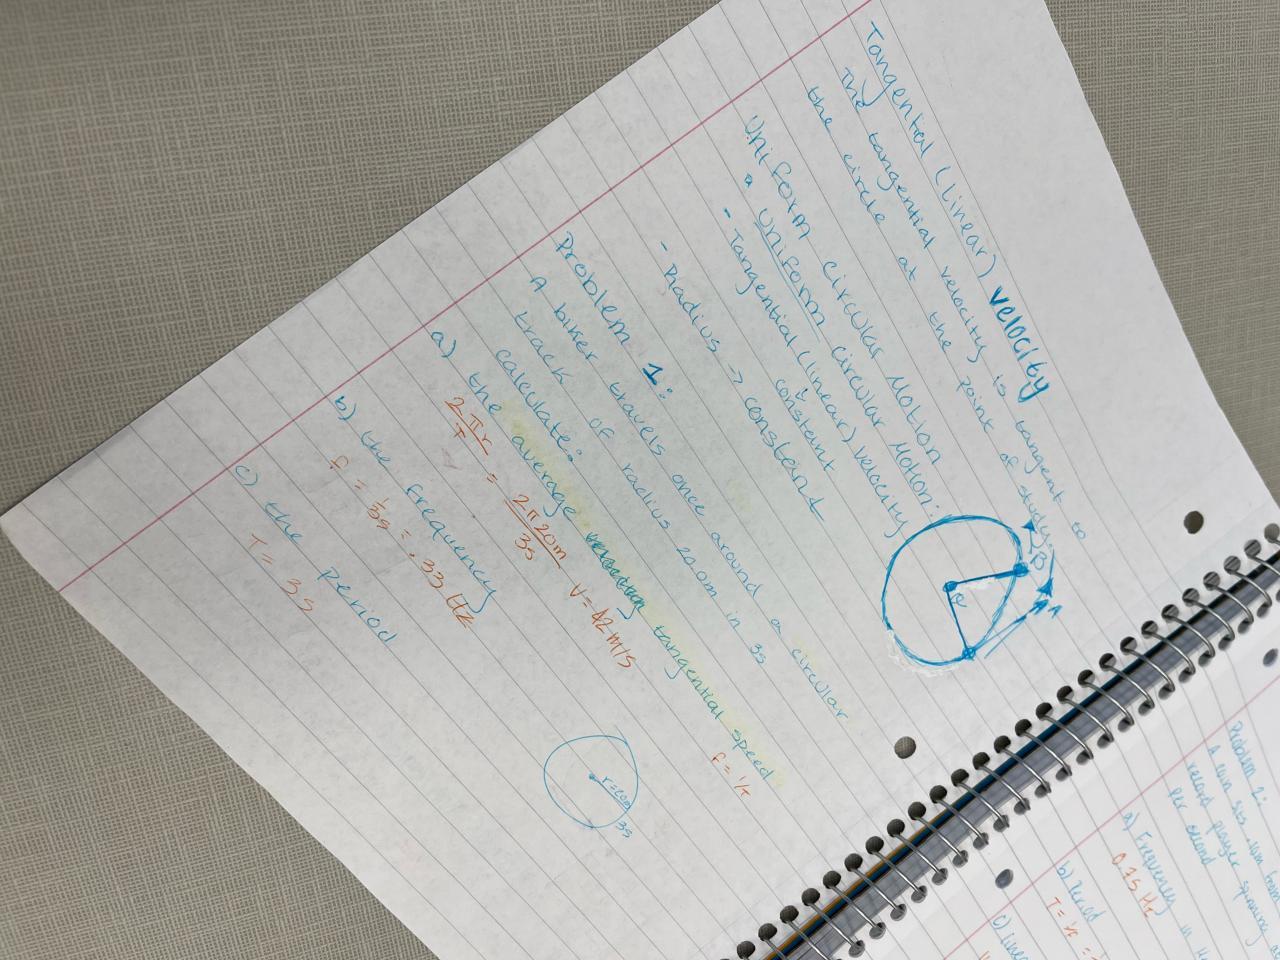 Tangential (linear) velocity
The tangential velocity is tangent to
the circle at the point of study.
Uniform circular Motion
Uniform circular Motion:
- Tangential (linear) velocity
↓
constant
- Radius → constant
B
A
θ
Problem 1:
A biker travels once around a circular
track of radius 20.0m in 3s
calculate:
a) the average tangential speed
2πr/T = 2π20m/3s V = 42 m/s
f = 1/T
b) the frequency
f = 1/3s = .33 Hz
c) the Period
T = 3s
r=20m
3s
Problem 2:
A coin sits
record player spinning
per second
a) Frequency in
0.75 Hz
b) Period
T = 1/f =
c) linea